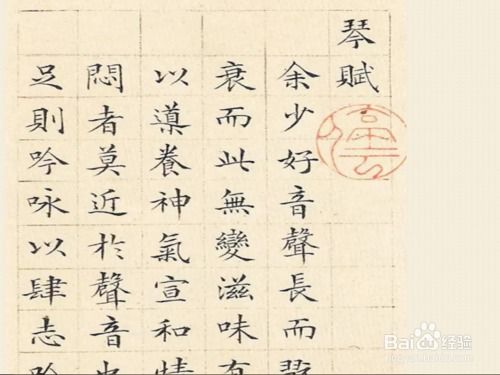 琴賦
余少好音聲長而
衰而此無變滋味有
以導養神氣宣和情
悶者莫近於聲音也
足則吟咏以肆志吟
Baidu经验